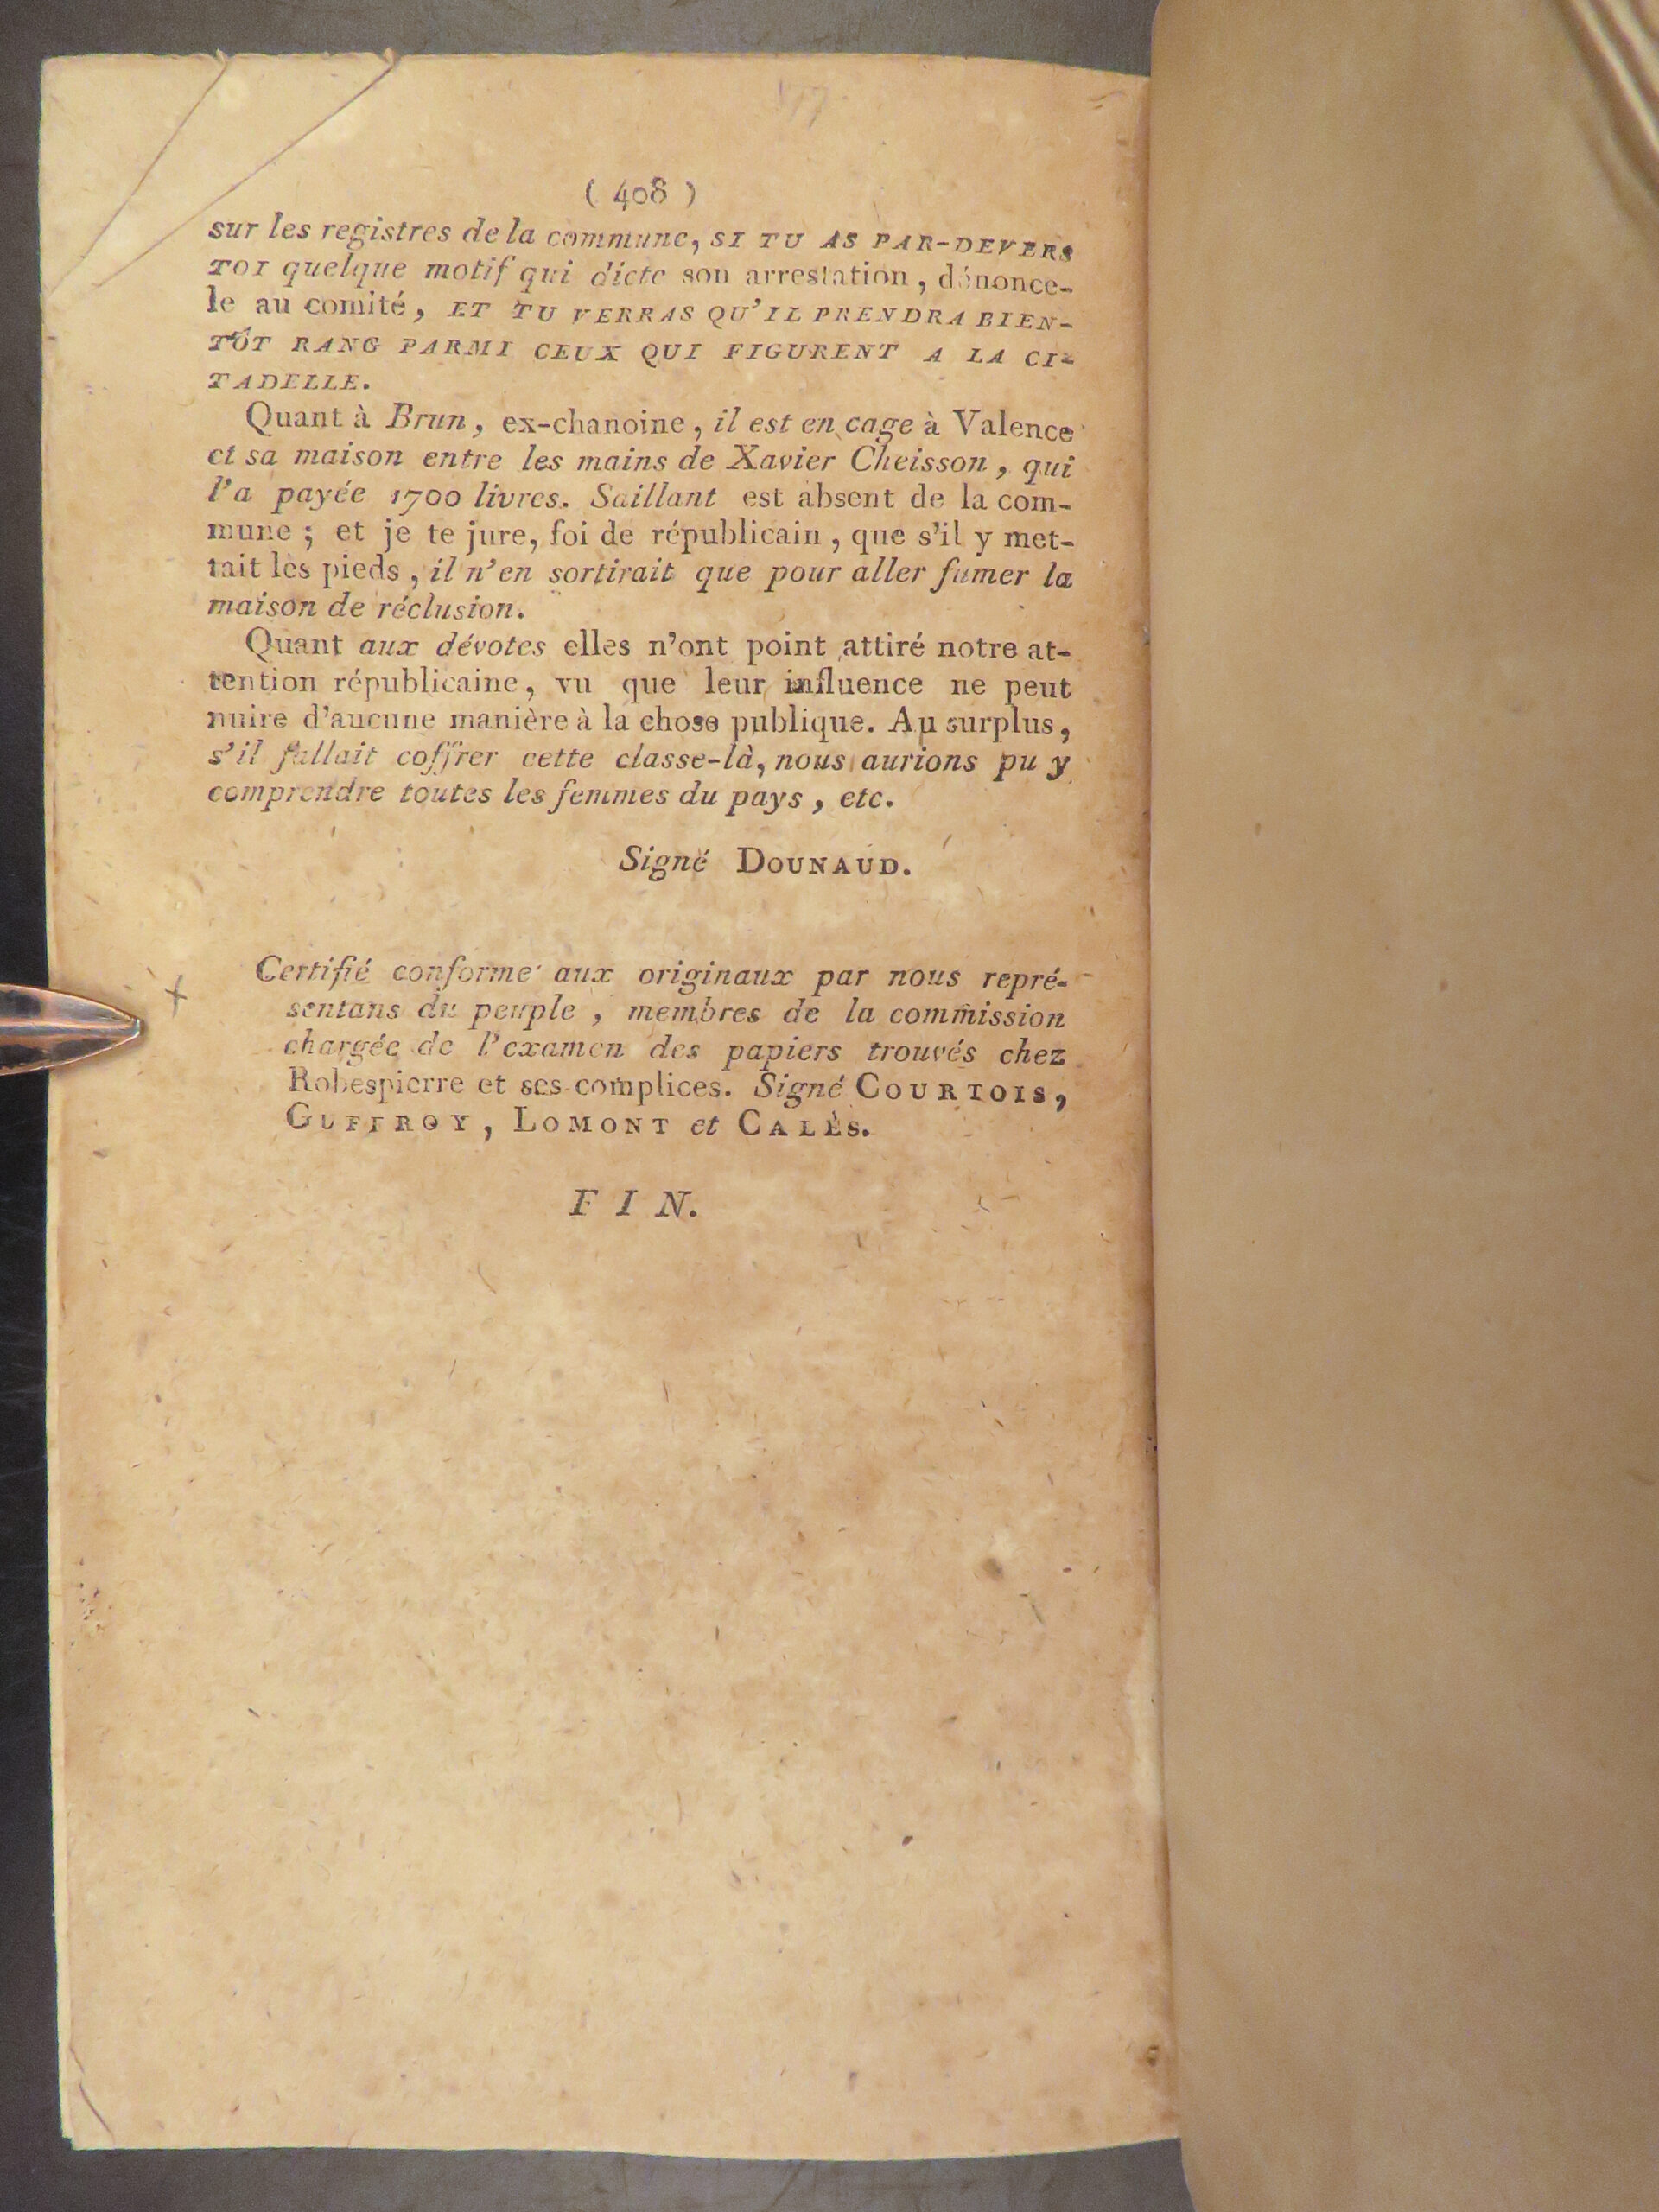 ( 408 )
sur les registres de la commune, SI TU AS PAR-DEVERS
TOI quelque motif qui dicte son arrestation, dénonce-
le au comité, ET TU VERRAS QU'IL PRENDRA BIEN-
TÔT RANG PARMI CEUX QUI FIGURENT A LA CI-
TADELLE.
Quant à Brun, ex-chanoine, il est en cage à Valence
et sa maison entre les mains de Xavier Cheisson, qui
l'a payée 1700 livres. Saillant est absent de la com-
mune ; et je te jure, foi de républicain, que s'il y met-
tait les pieds, il n'en sortirait que pour aller fumer la
maison de réclusion.
Quant aux dévotes elles n'ont point attiré notre at-
tention républicaine, vu que leur influence ne peut
nuire d'aucune manière à la chose publique. Au surplus,
s'il fallait coffrer cette classe-là, nous aurions pu y
comprendre toutes les femmes du pays, etc.
Signé DOUNAUD.
Certifié conforme aux originaux par nous repré-
sentans du peuple, membres de la commission
chargée de l'examen des papiers trouvés chez
Robespierre et ses complices. Signé COURTOIS,
GUFFROY, LOMONT et CALÈS.
FIN.